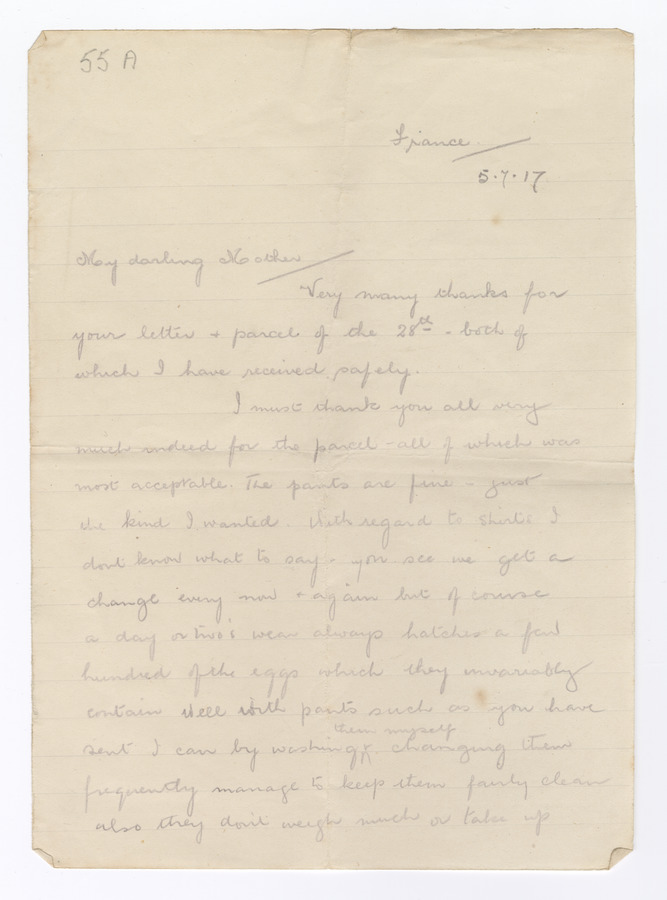 55 A
France
5.7.17
My darling Mother
Very many thanks for
your letter + parcel of the 28th - both of
which I have received safely.
I must thank you all very
much indeed for the parcel - all of which was
most acceptable. The pants are fine - just
the kind I wanted. With regard to shirts I
dont know what to say - you see we get a
change every now + again but of course
a day or two's wear always hatches a few
hundred of the eggs which they invariably
contain well with pants such as you have
them myself
sent I can by washing & changing them
frequently manage to keep them fairly clean
also they don't weigh much or take up